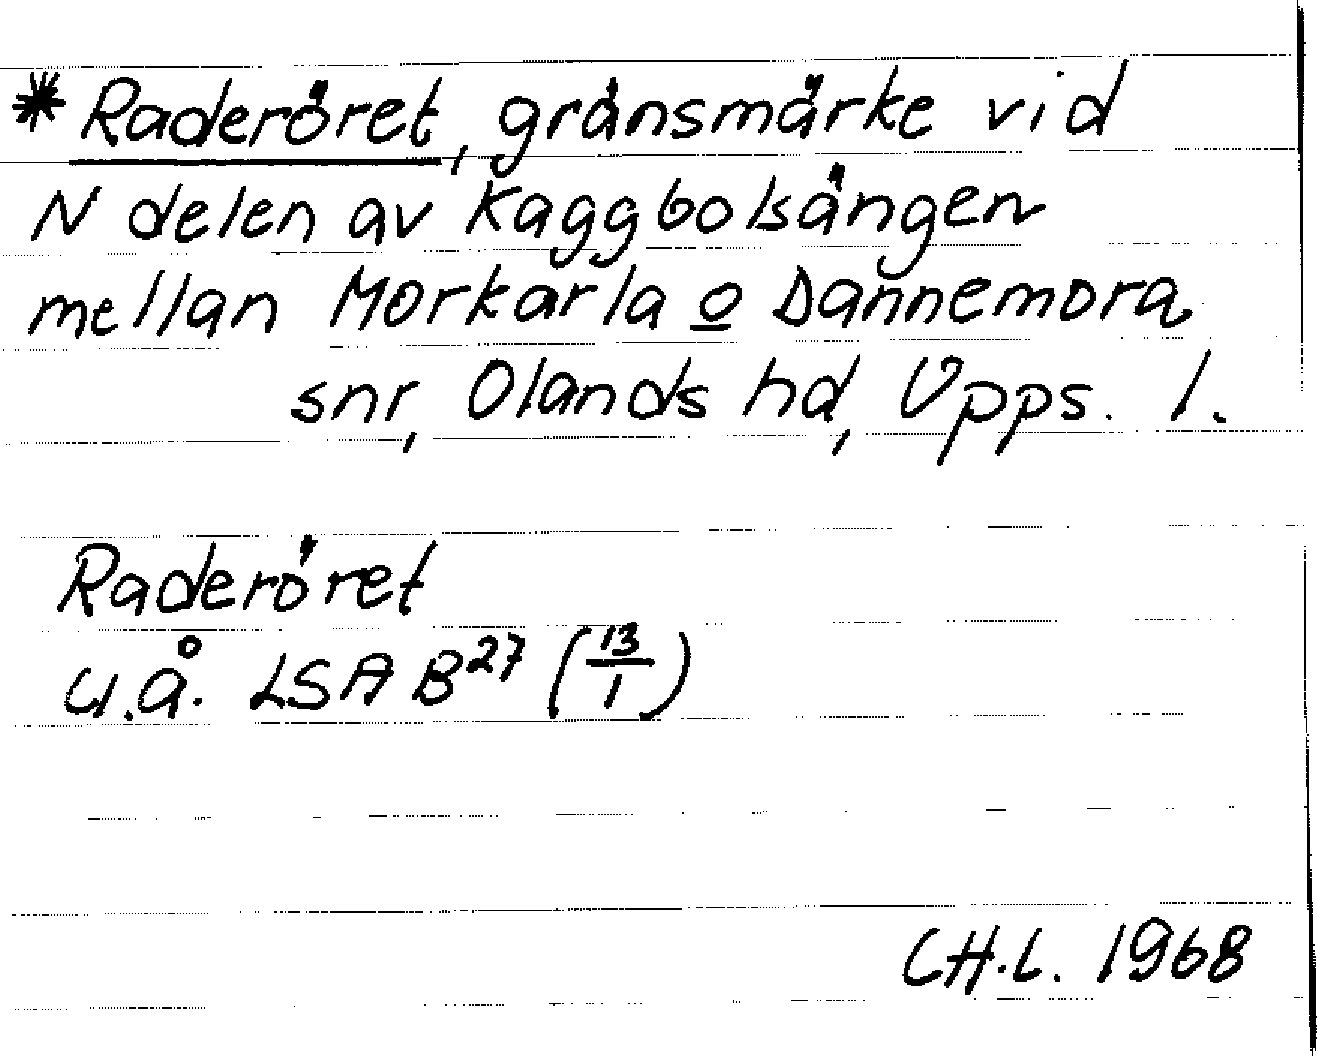 * Raderöret, gränsmärke vid
N delen av Kaggbolsängen
mellan Morkarla o Dannemora
snr, Olands hd, Upps. l.
Raderöret
u.å. LSA B²⁷ (13/1)
CH.L. 1968